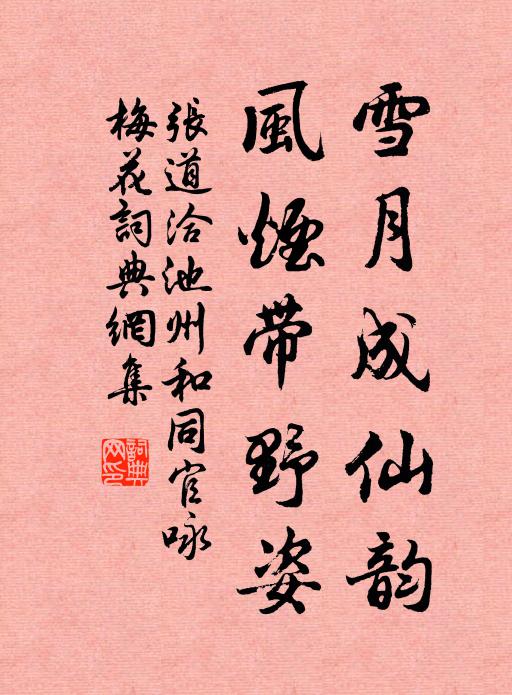 雪月成仙韵
風煙帶野姿
張道洽池州和同官咏
梅花詞典網集
詞典网印